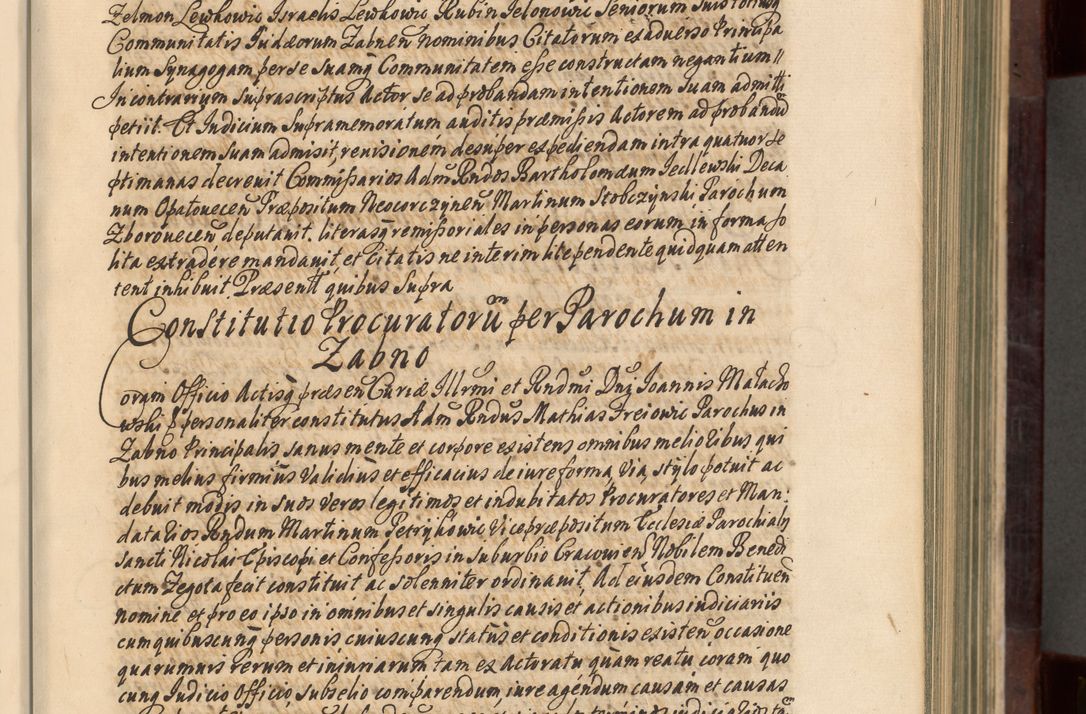 Zelmon Lewkowic Israelis Lewkowic Rubin Jelonowic Seniorum suis totiusq̃
Communitatis Iudæorum Zabnen̄ nominibus Citatorum ex adverso Principa
lium Synagogam per se suamq̃ Communitatem eſse constructam negantium //
In contrarium suprascriptus Actor se ad probandam intentionem suam admitti
petiit. Et Iudicium Supramemoratum auditis præmiſsis Actorem ad probandū
intentionem suam admisit, revisionem desuper expediendam intra quatuor se
ptimanas decrevit Commiſsarios Adm̄ Rndos Bartholomæum Jedlewski Deca
num Opatovecen̄ Præpositum Neocorczynen̄ Martinum Stobczynski Parochum
Zborovecen̄ deputavit, literasq̃ remiſsoriales in personas eorum in forma so
lita extradere mandavit, et Citatis ne interim lite pendente quidquam atten
tent inhibuit, Præsentt̄ quibus Supra
Constitutio Procuratorūm per Parochum in
Zabno
Coram Officio Actisq̃ præsen̄ Curiæ Illrmi et Rndmi Dnj Joannis Małacho
wski personaliter constitutus Adm̄ Rndus Mathias Freiowic Parochus in
Zabno Principalis sanus mente et corpore existens, omnibus melioribus qui
bus melius firmius validius et efficacius de iure forma, via, stylo potuit ac
debuit modis in suos veros legitimos et indubitatos Procuratores et Man:
datarios Rndum Martinum Petrykowic Vicepræpositum Ecclesiæ Parochialis
sancti Nicolai Episcopi et Confeſsoris in suburbio Cracovien̄ Nobilem Benedi
ctum Zegota fecit constituit ac solenniter ordinavit, Ad eiusdem Constituen̄
nomine et pro eo ipso in omnibus et singulis causis et actionibus iudiciariis
cum quibuscunq̃ personis cuiuscunq̃ status et conditionis existen̄ occasione
quarumvis rerum et iniuriarum tam ex Actoratu quam reatu coram quo
cunq̃ Iudicio Officio, Subselio comparendum, iure agendum causam et causas